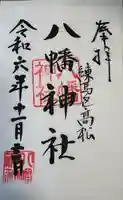 奉拝
練馬區高松
八幡神社
令和六年十一月三日